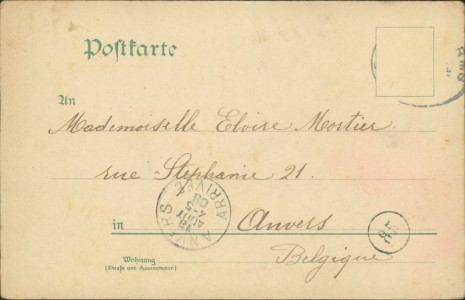 Postkarte
An
Mademoiselle Eloise Mortier
rue Stephanie 21.
in Anvers
Belgique
Wohnung
(Straße und Hausnummer)
ANVERS
ARRIVEE
AOUT
85